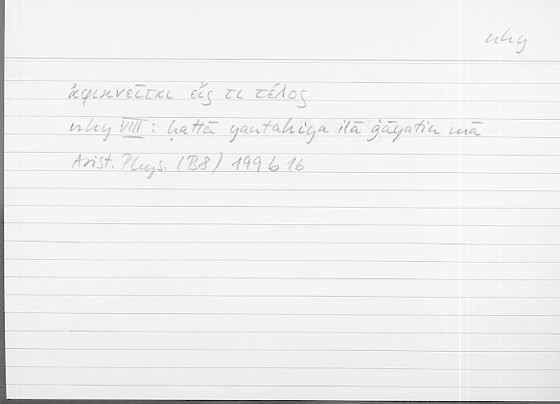 nhy
ἀφικνεῖται εἴς τι τέλος
nhy VIII : ḥattā yantahiya ilā ġāyatin mā
Arist. Phys. (B8) 199 b 16